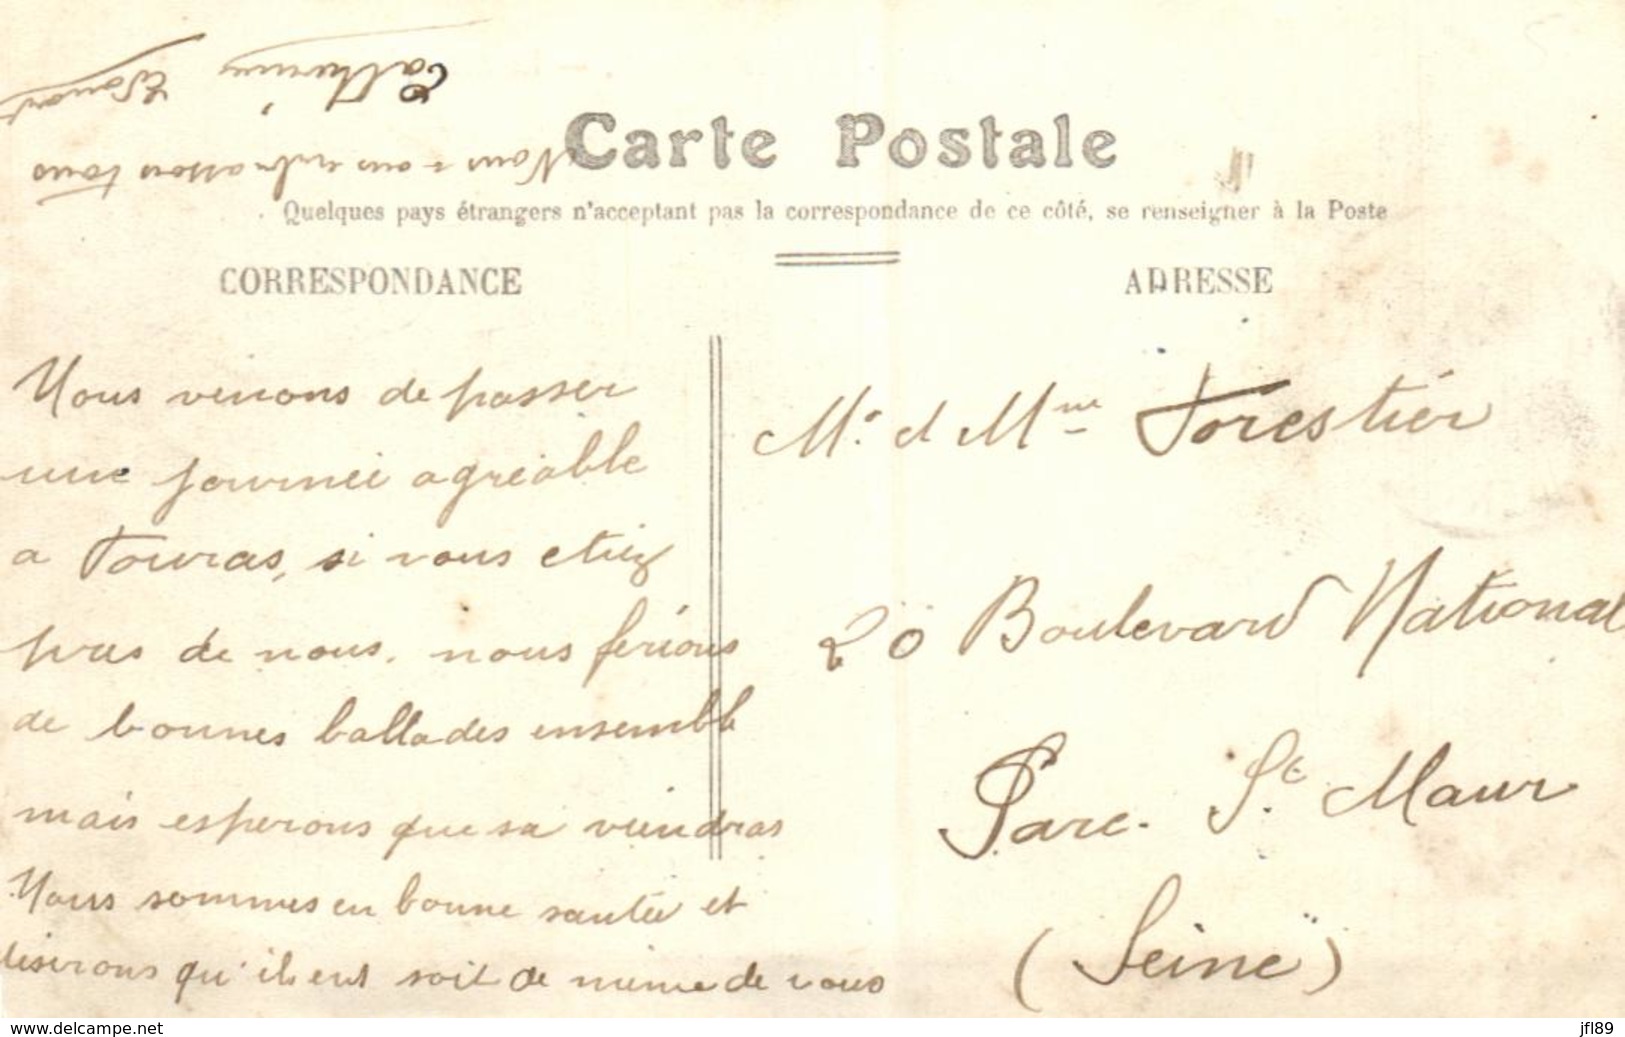 Carte Postale
Quelques pays étrangers n'acceptant pas la correspondance de ce côté, se renseigner à la Poste
CORRESPONDANCE
Nous venons de passer
une journéé agréable
a Fouras, si vous etiez
pres de nous. nous ferions
de bonnes ballades ensemble
mais esperons que sa viendras
Nous sommes en bonne santée et
désirons qu'il ent soit de mème de vous
Nous vous embrassons tous
Catherine
ADRESSE
Mr. et Mme Forestier
20 Boulevard National
Parc. St. Maur
(Seine)
www.delcampe.net
jfl89